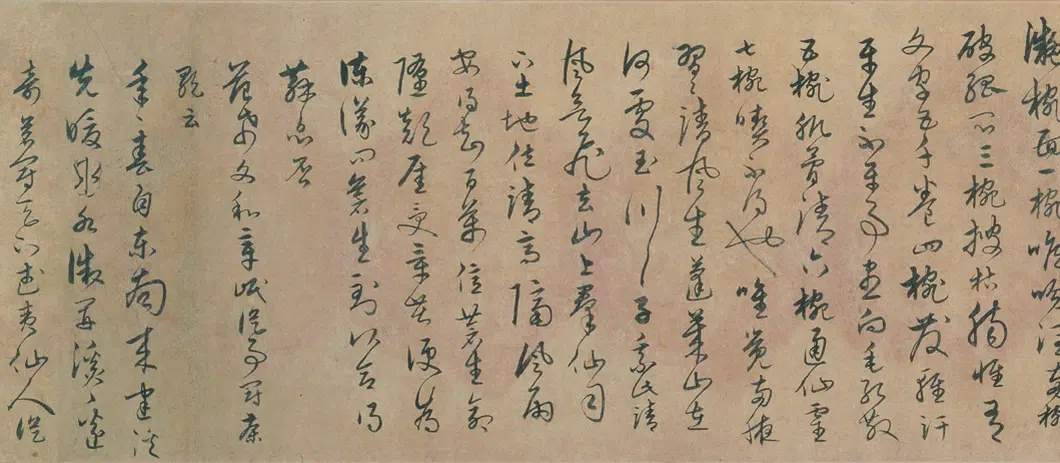 凝椀面一椀喉吻潤兩椀
破孤悶三椀搜枯腸惟有
文字五千卷四椀發輕汗
平生不平事盡向毛孔散
五椀肌骨清六椀通仙靈
七椀喫不得也唯覺兩腋
習習清風生蓬萊山在
何處玉川子乘此清
風欲飛去山上群仙司
下土地位清高隔風雨
安得知百萬億蒼生命
墮顛崖受辛苦便為
諫議問蒼生到頭合得
蘇息否
范希文和章岷從事鬥茶
歌云
年年春自東南來建溪
先暖冰微開溪邊
奇茗冠天下武夷仙人從